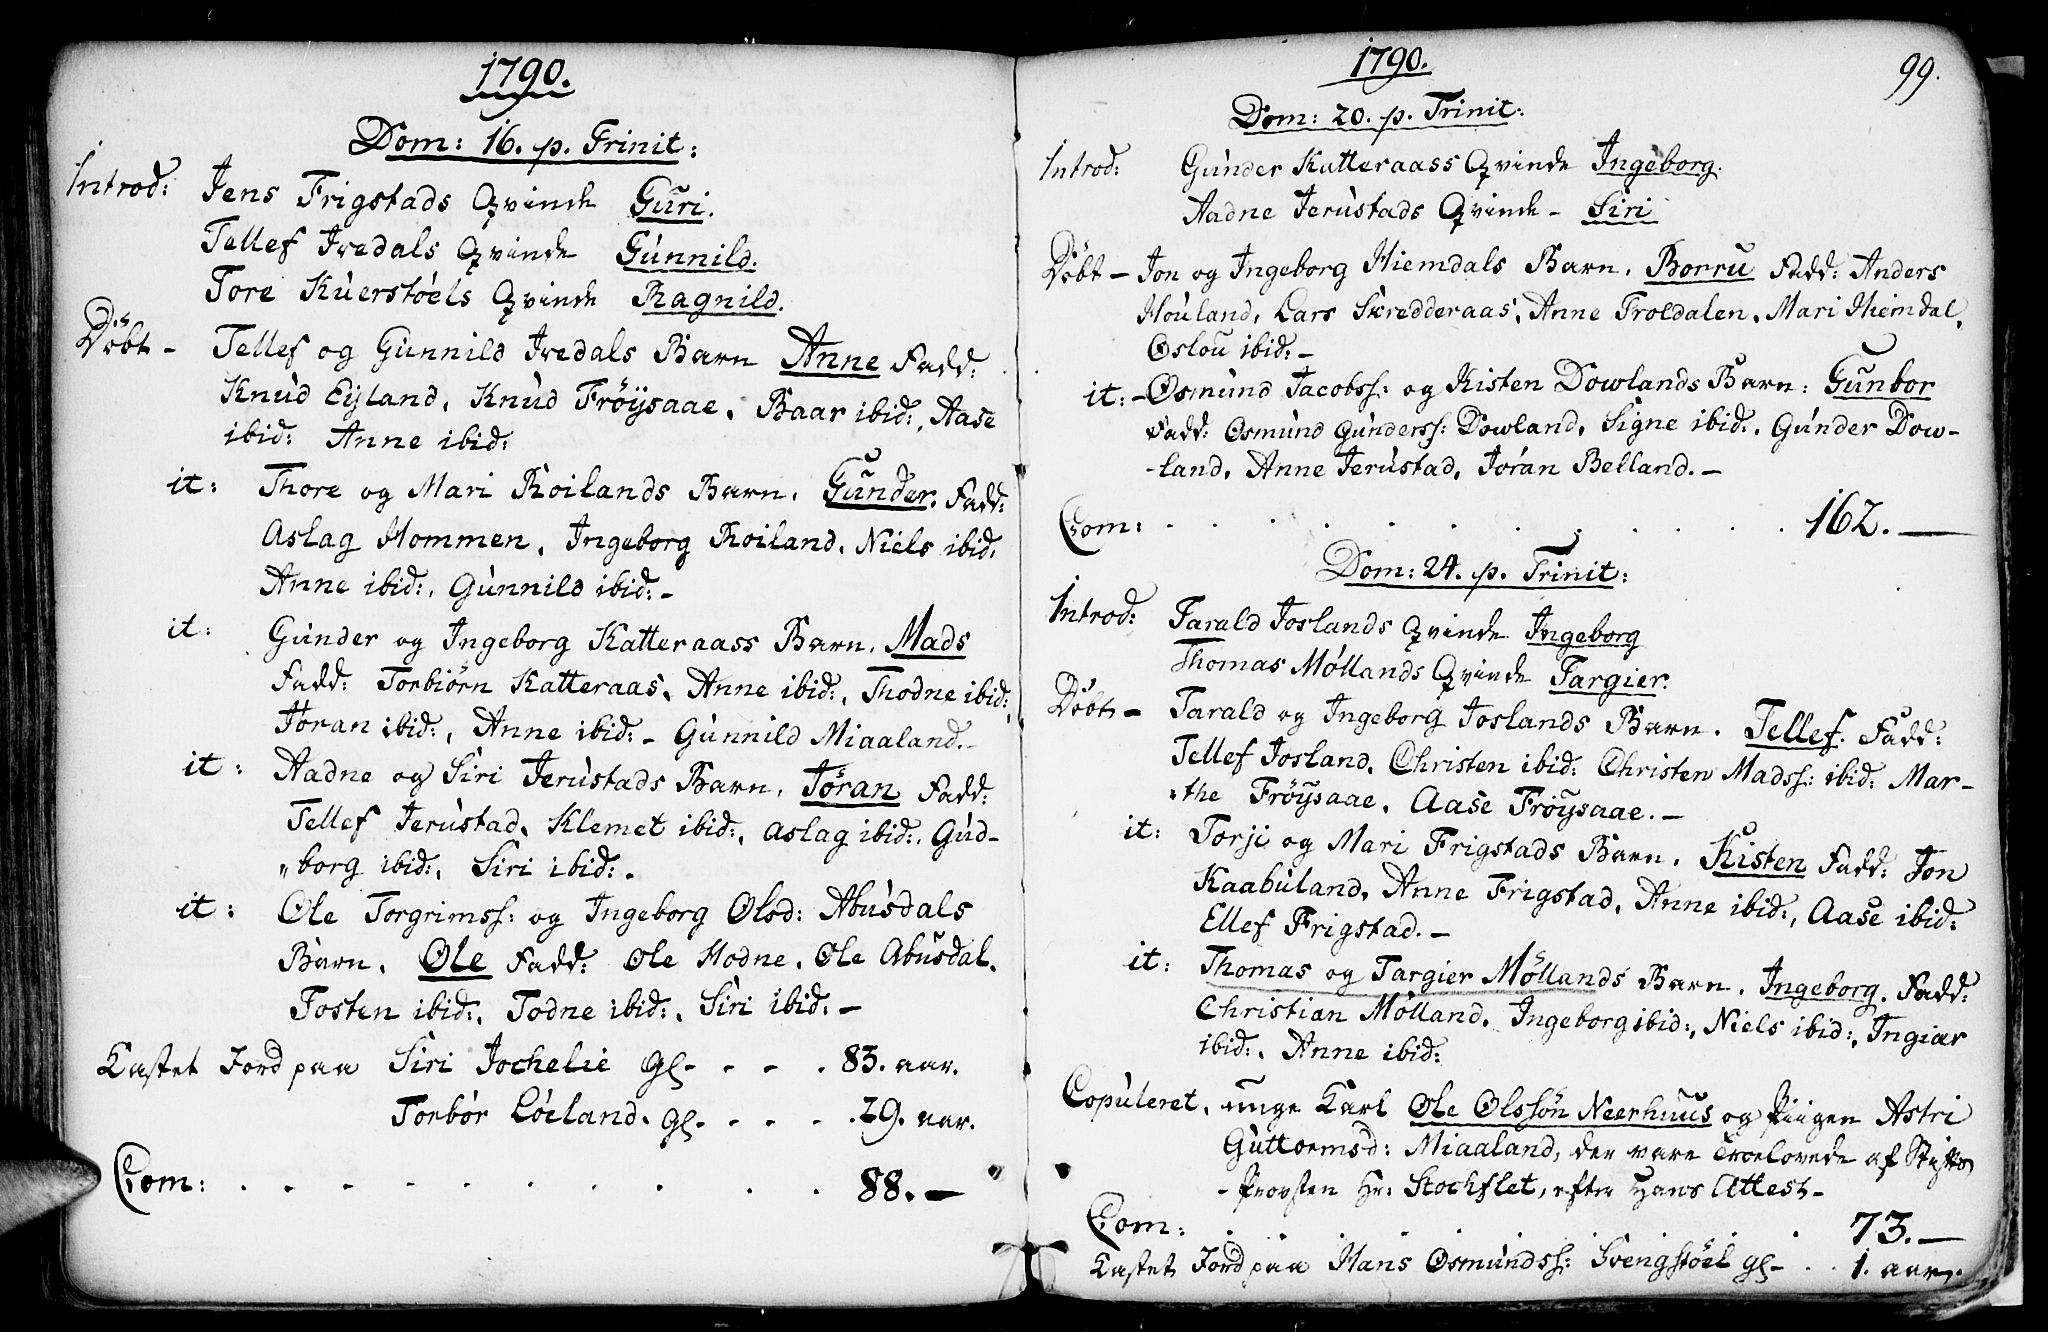 1790.
Dom: 16. p. Trinit:
Introd: Jens Frigstads Qvinde Guri.
Tellef Iredals Qvinde Gunnild.
Tore Kuerstöels Qvinde Ragnild.
Döbt - Tellef og Gunnild Iredals Barn Anne Fadd:
Knud Eyland, Knud Fröysaae, Baar ibid:, Aase
ibid: Anne ibid:
it: Thore og Mari Roilands Barn. Gunder. Fadd:
Aslag Hommen, Ingeborg Roiland, Niels ibid.
Anne ibid:, Gunnild ibid:-
it: Gunder og Ingeborg Katteraass Barn. Mads
Fadd: Torbiörn Katteraas, Anne ibid:, Thodne ibid:,
Jöran ibid:, Anne ibid:- Gunnild Miaaland.-
it: Aadne og Siri Jerustads Barn. Jöran Fadd:
Tellef Jerustad, Klemet ibid:, Aslag ibid:, Gud-
"borg ibid:, Siri ibid:.
it: Ole Torgrimss: og Ingeborg Olsd: Abusdals
Barn. Ole Fadd: Ole Hodne, Ole Abusdal,
Tosten ibid:, Todne ibid:, Siri ibid:-
Kastet Jord paa Siri Jochelie gl- . . . 83. aar.
Torbör Löeland. gl- . . . 29. aar.
Com: . . . . . . . . . . 88.-
1790. 99.
Dom: 20. p. Trinit:
Introd: Gunder Katteraass Qvinde Ingeborg.
Aadne Jerustads Qvinde - Siri
Döbt - Jon og Ingeborg Hiemdals Barn. Borru Fadd: Anders
Houland, Lars Skredderaas, Anne Troldalen, Mari Hiemdal,
Oslou ibid:-
it:- Osmund Jacobss: og Kisten Dowlands Barn: Gunbor
Fadd: Osmund Gunderss: Dowland, Signe ibid:, Gunder Dow-
-land, Anne Jerustad, Jöran Belland.-
Com: . . . . . . . . . . 162.-
Dom: 24. p. Trinit:
Introd: Tarald Joslands Qvinde Ingeborg
Thomas Möllands Qvinde Targier.
Döbt - Tarald og Ingeborg Joslands Barn. Tellef. Fadd:
Tellef Josland, Christen ibid: Christen Madss: ibid: Mar-
"the Fröysaae, Aase Fröysaae.-
it: Torji og Mari Frigstads Barn. Kisten Fadd: Jon
Kaabuland, Anne Frigstad, Anne ibid:, Aase ibid:
Ellef Frigstad.-
it: Thomas og Targier Möllands Barn. Ingeborg. Fadd:
Christian Mölland, Ingeborg ibid:, Niels ibid:, Ingiær
ibid:, Anne ibid:
Copuleret, unge Karl Ole Olssön Neerhuus og Piigen Astri
Guttormsd: Miaaland, der vare Troelovede af Stifts
-Provsten Hr: Stockflet, efter Hans Attest-
Com: . . . . . . . . 73.-
Kastet Jord paa Hans Osmundss: Svengstöel gl- . . 1. aar.